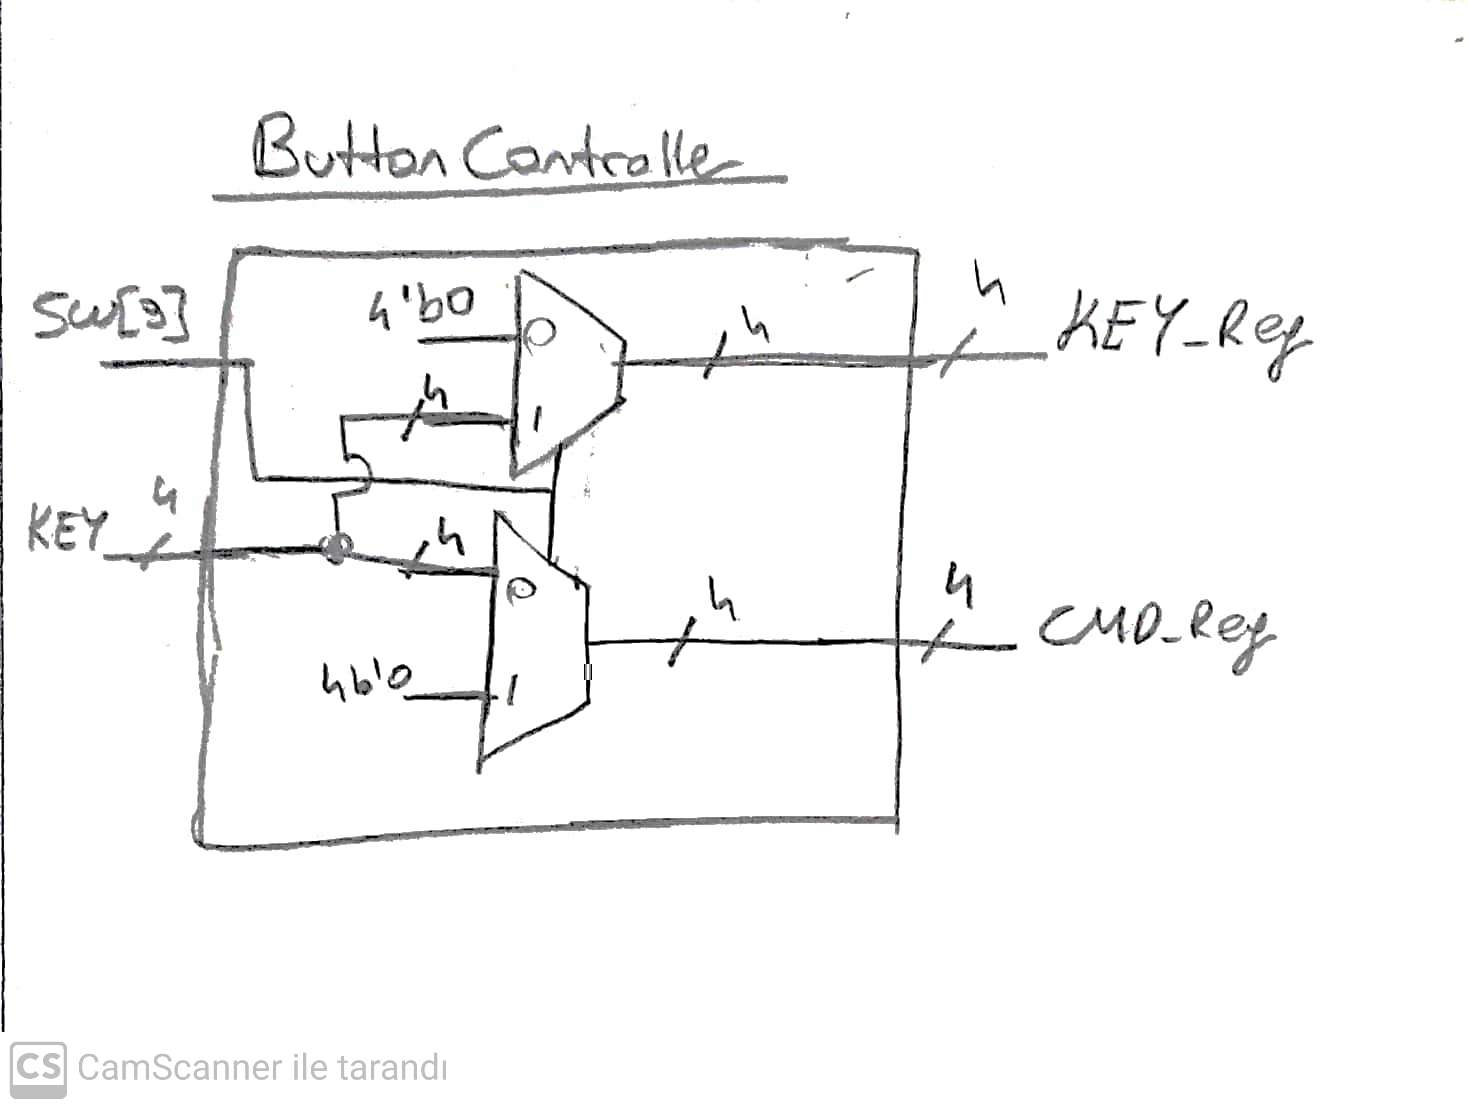 Button Controller
SW[9]
4'b0
0
4
4
KEY_Reg
4
1
KEY
4
4
0
4
4
CMD_Reg
4b'0
1
CS CamScanner ile tarandı